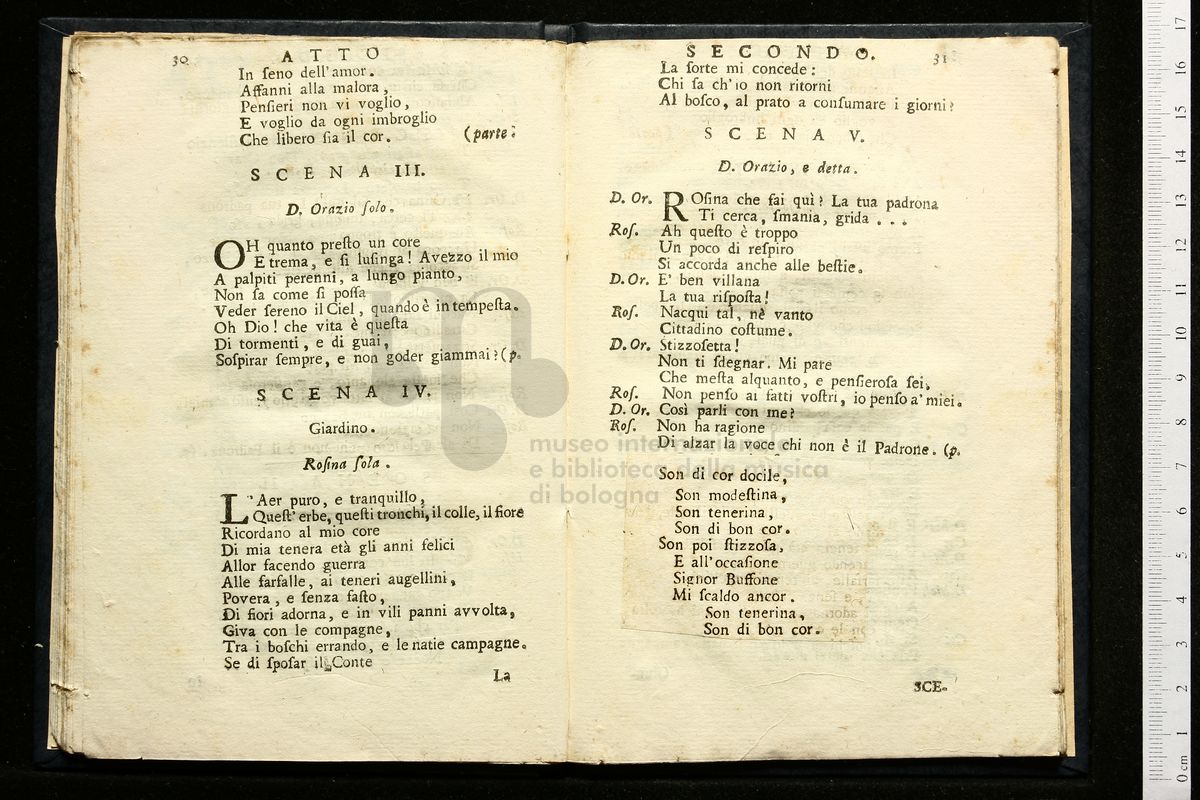 30
ATTO
In ſeno dell'amor.
Affanni alla malora,
Penſieri non vi voglio,
E voglio da ogni imbroglio
Che libero ſia il cor. (parte.
SCENA III.
D. Orazio ſolo.
OH quanto preſto un core
E trema, e ſi luſinga! Avezzo il mio
A palpiti perenni, a lungo pianto,
Non ſa come ſi poſſa
Veder ſereno il Ciel, quando è in tempeſta.
Oh Dio! che vita è queſta
Di tormenti, e di guai,
Soſpirar ſempre, e non goder giammai? (p.
SCENA IV.
Giardino.
Roſina ſola.
L'Aer puro, e tranquillo,
Queſt' erbe, queſti tronchi, il colle, il fiore
Ricordano al mio core
Di mia tenera età gli anni felici
Allor facendo guerra
Alle farfalle, ai teneri augellini,
Povera, e ſenza faſto,
Di fiori adorna, e in vili panni avvolta,
Giva con le compagne,
Tra i boſchi errando, e le natie campagne.
Se di ſpoſar il Conte
La
SECONDO.
31
La ſorte mi concede:
Chi ſa ch'io non ritorni
Al boſco, al prato a conſumare i giorni?
SCENA V.
D. Orazio, e detta.
D. Or. ROſina che fai quì? La tua padrona
Ti cerca, ſmania, grida . . .
Roſ. Ah queſto è troppo
Un poco di reſpiro
Si accorda anche alle beſtie.
D. Or. E' ben villana
La tua riſpoſta!
Roſ. Nacqui tal, nè vanto
Cittadino coſtume.
D. Or. Stizzoſetta!
Non ti ſdegnar. Mi pare
Che meſta alquanto, e penſieroſa ſei.
Roſ. Non penſo ai fatti voſtri, io penſo a' miei.
D. Or. Così parli con me?
Roſ. Non ha ragione
Di alzar la voce chi non è il Padrone. (p.
Son di cor docile,
Son modeſtina,
Son tenerina,
Son di bon cor.
Son poi ſtizzoſa,
E all'occaſione
Signor Buffone
Mi ſcaldo ancor.
Son tenerina,
Son di bon cor.
SCE-
museo internazionale
e biblioteca della musica
di bologna
0 cm 1 2 3 4 5 6 7 8 9 10 11 12 13 14 15 16 17